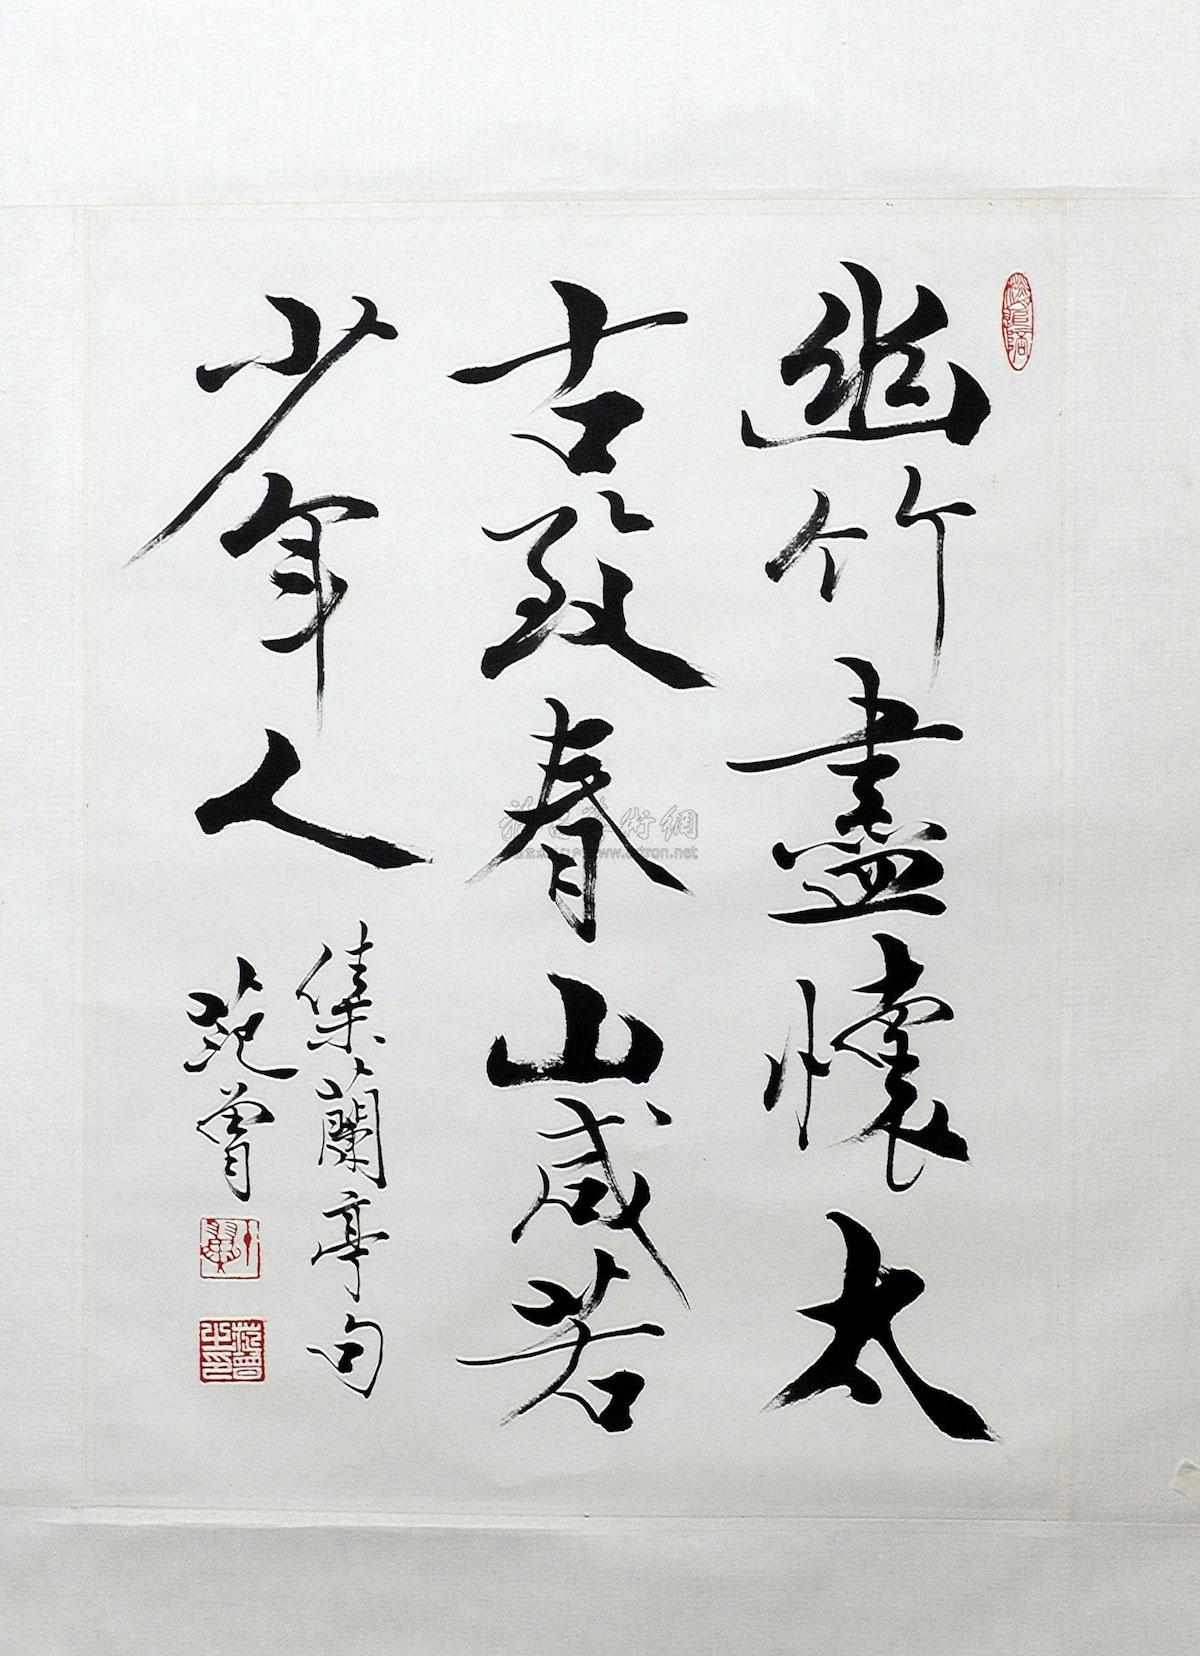 幽竹盡懷太
古致春山咸若
少年人
集蘭亭句
范曾
范曾之印
www.artron.net